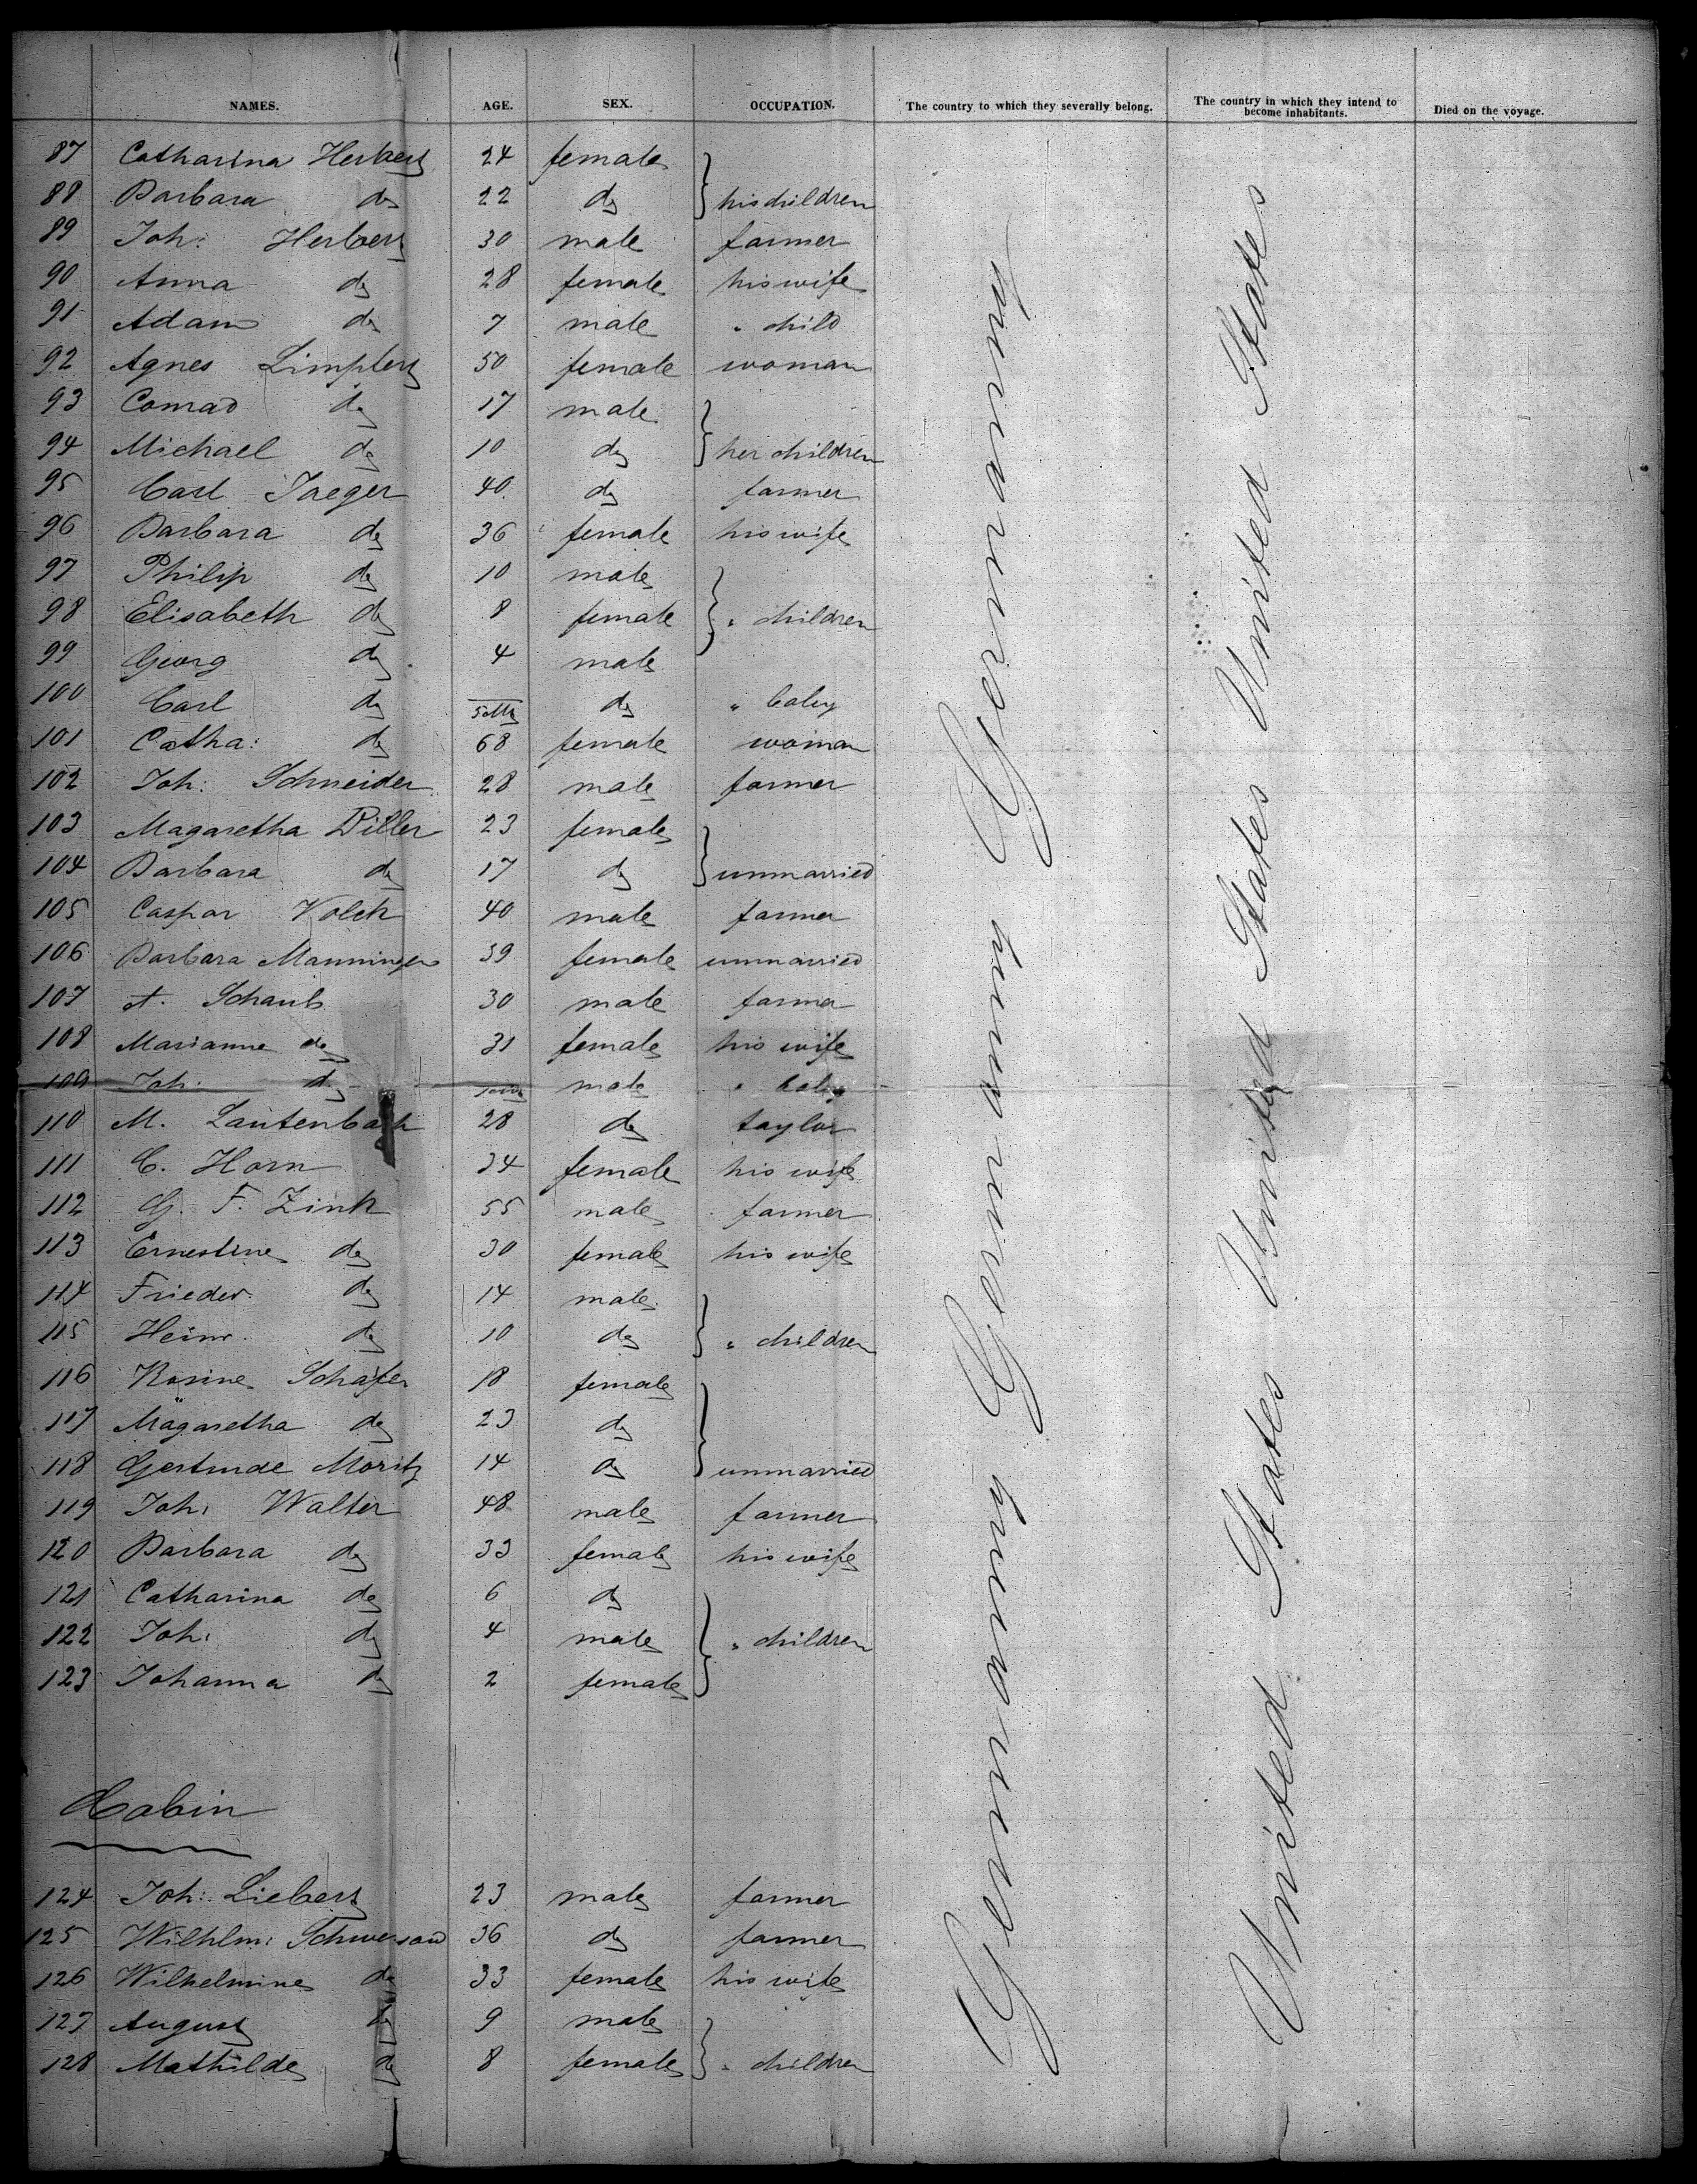 NAMES. AGE. SEX. OCCUPATION. The country to which they severally belong. The country in which they intend to become inhabitants. Died on the voyage.
87 Catharina Herbert 24 female
88 Barbara do 22 do } his children
89 Joh: Herbert 30 male farmer
90 Anna do 28 female his wife
91 Adam do 7 male " child
92 Agnes Limpert 50 female woman
93 Conrad do 17 male
94 Michael do 10 do } her children
95 Carl Jaeger 40. do farmer
96 Barbara do 36 female his wife
97 Philip do 10 male
98 Elisabeth do 8 female } " children
99 Georg do 4 male
100 Carl do 5 Mts do " baby
101 Catha: do 68 female woman
102 Joh: Schneider 28 male farmer
103 Magaretha Diller 23 female
104 Barbara do 17 do } unmarried
105 Caspar Volck 40 male farmer
106 Barbara Manninger 39 female unmarried
107 A. Schaub 30 male farmer
108 Marianne do 31 female his wife
109 Joh: do male " baby
110 M. Lautenbach 28 do taylor
111 C. Horn 34 female his wife
112 G. F. Zink 55 male farmer
113 Ernestine do 30 female his wife
114 Frieder. do 14 male
115 Heinr. do 10 do } " children
116 Rosine Schäfer 18 female
117 Magaretha do 23 do
118 Gertrude Moritz 14 do } unmarried
119 Joh: Walter 48 male farmer
120 Barbara do 33 female his wife
121 Catharina do 6 do
122 Joh: do 4 male } " children
123 Johanna do 2 female
Cabin
124 Joh: Liebert 23 male farmer
125 Wilhlm: 36 do farmer
126 Wilhelmine do 33 female his wife
127 August do 9 male
128 Mathilde do 8 female } " children
Germany Germany Germany Germany
United States United States United States United States